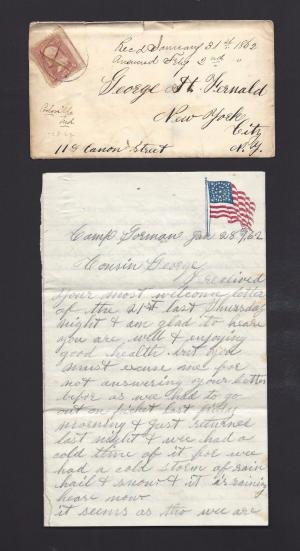 Recd January 31st 1862
Answered Feby 2nd "
George H. Fernald
New York
City
N.Y.
118 Canon Street
Md
Camp Gorman Jan 28th/62
Cousin George
I received
your most welcome letter
of the 21st last Thursday
night & am glad to heare
you are well & enjoying
good health but you
must excuse me for
not answering your letter
befor as we had to go
out on picket last friday
morning & Just returned
last night & wee had a
cold time of it for wee
had a cold storm of rain
hail & snow & it is raining
heare now
it seems as tho wee are